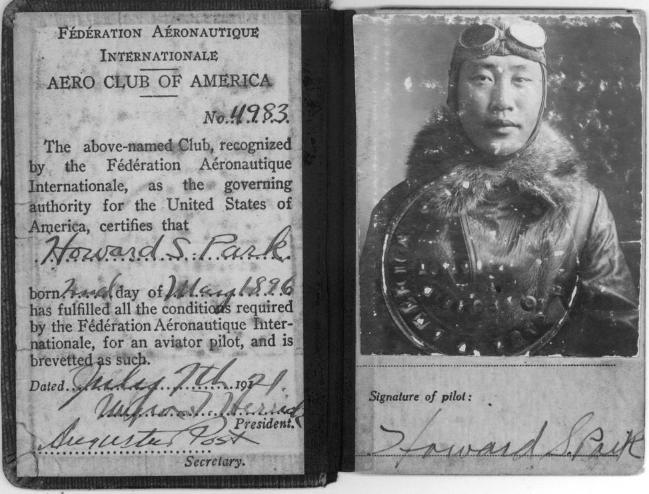 FÉDÉRATION AÉRONAUTIQUE
INTERNATIONALE
AERO CLUB OF AMERICA
No. 4983.
The above-named Club, recognized
by the Fédération Aéronautique
Internationale, as the governing
authority for the United States of
America, certifies that
Howard S. Park
born 2nd day of May 1896
has fulfilled all the conditions required
by the Fédération Aéronautique Inter-
nationale, for an aviator pilot, and is
brevetted as such.
Dated July 7th 1921.
President.
Augustus Post
Secretary.
Signature of pilot:
Howard S. Park